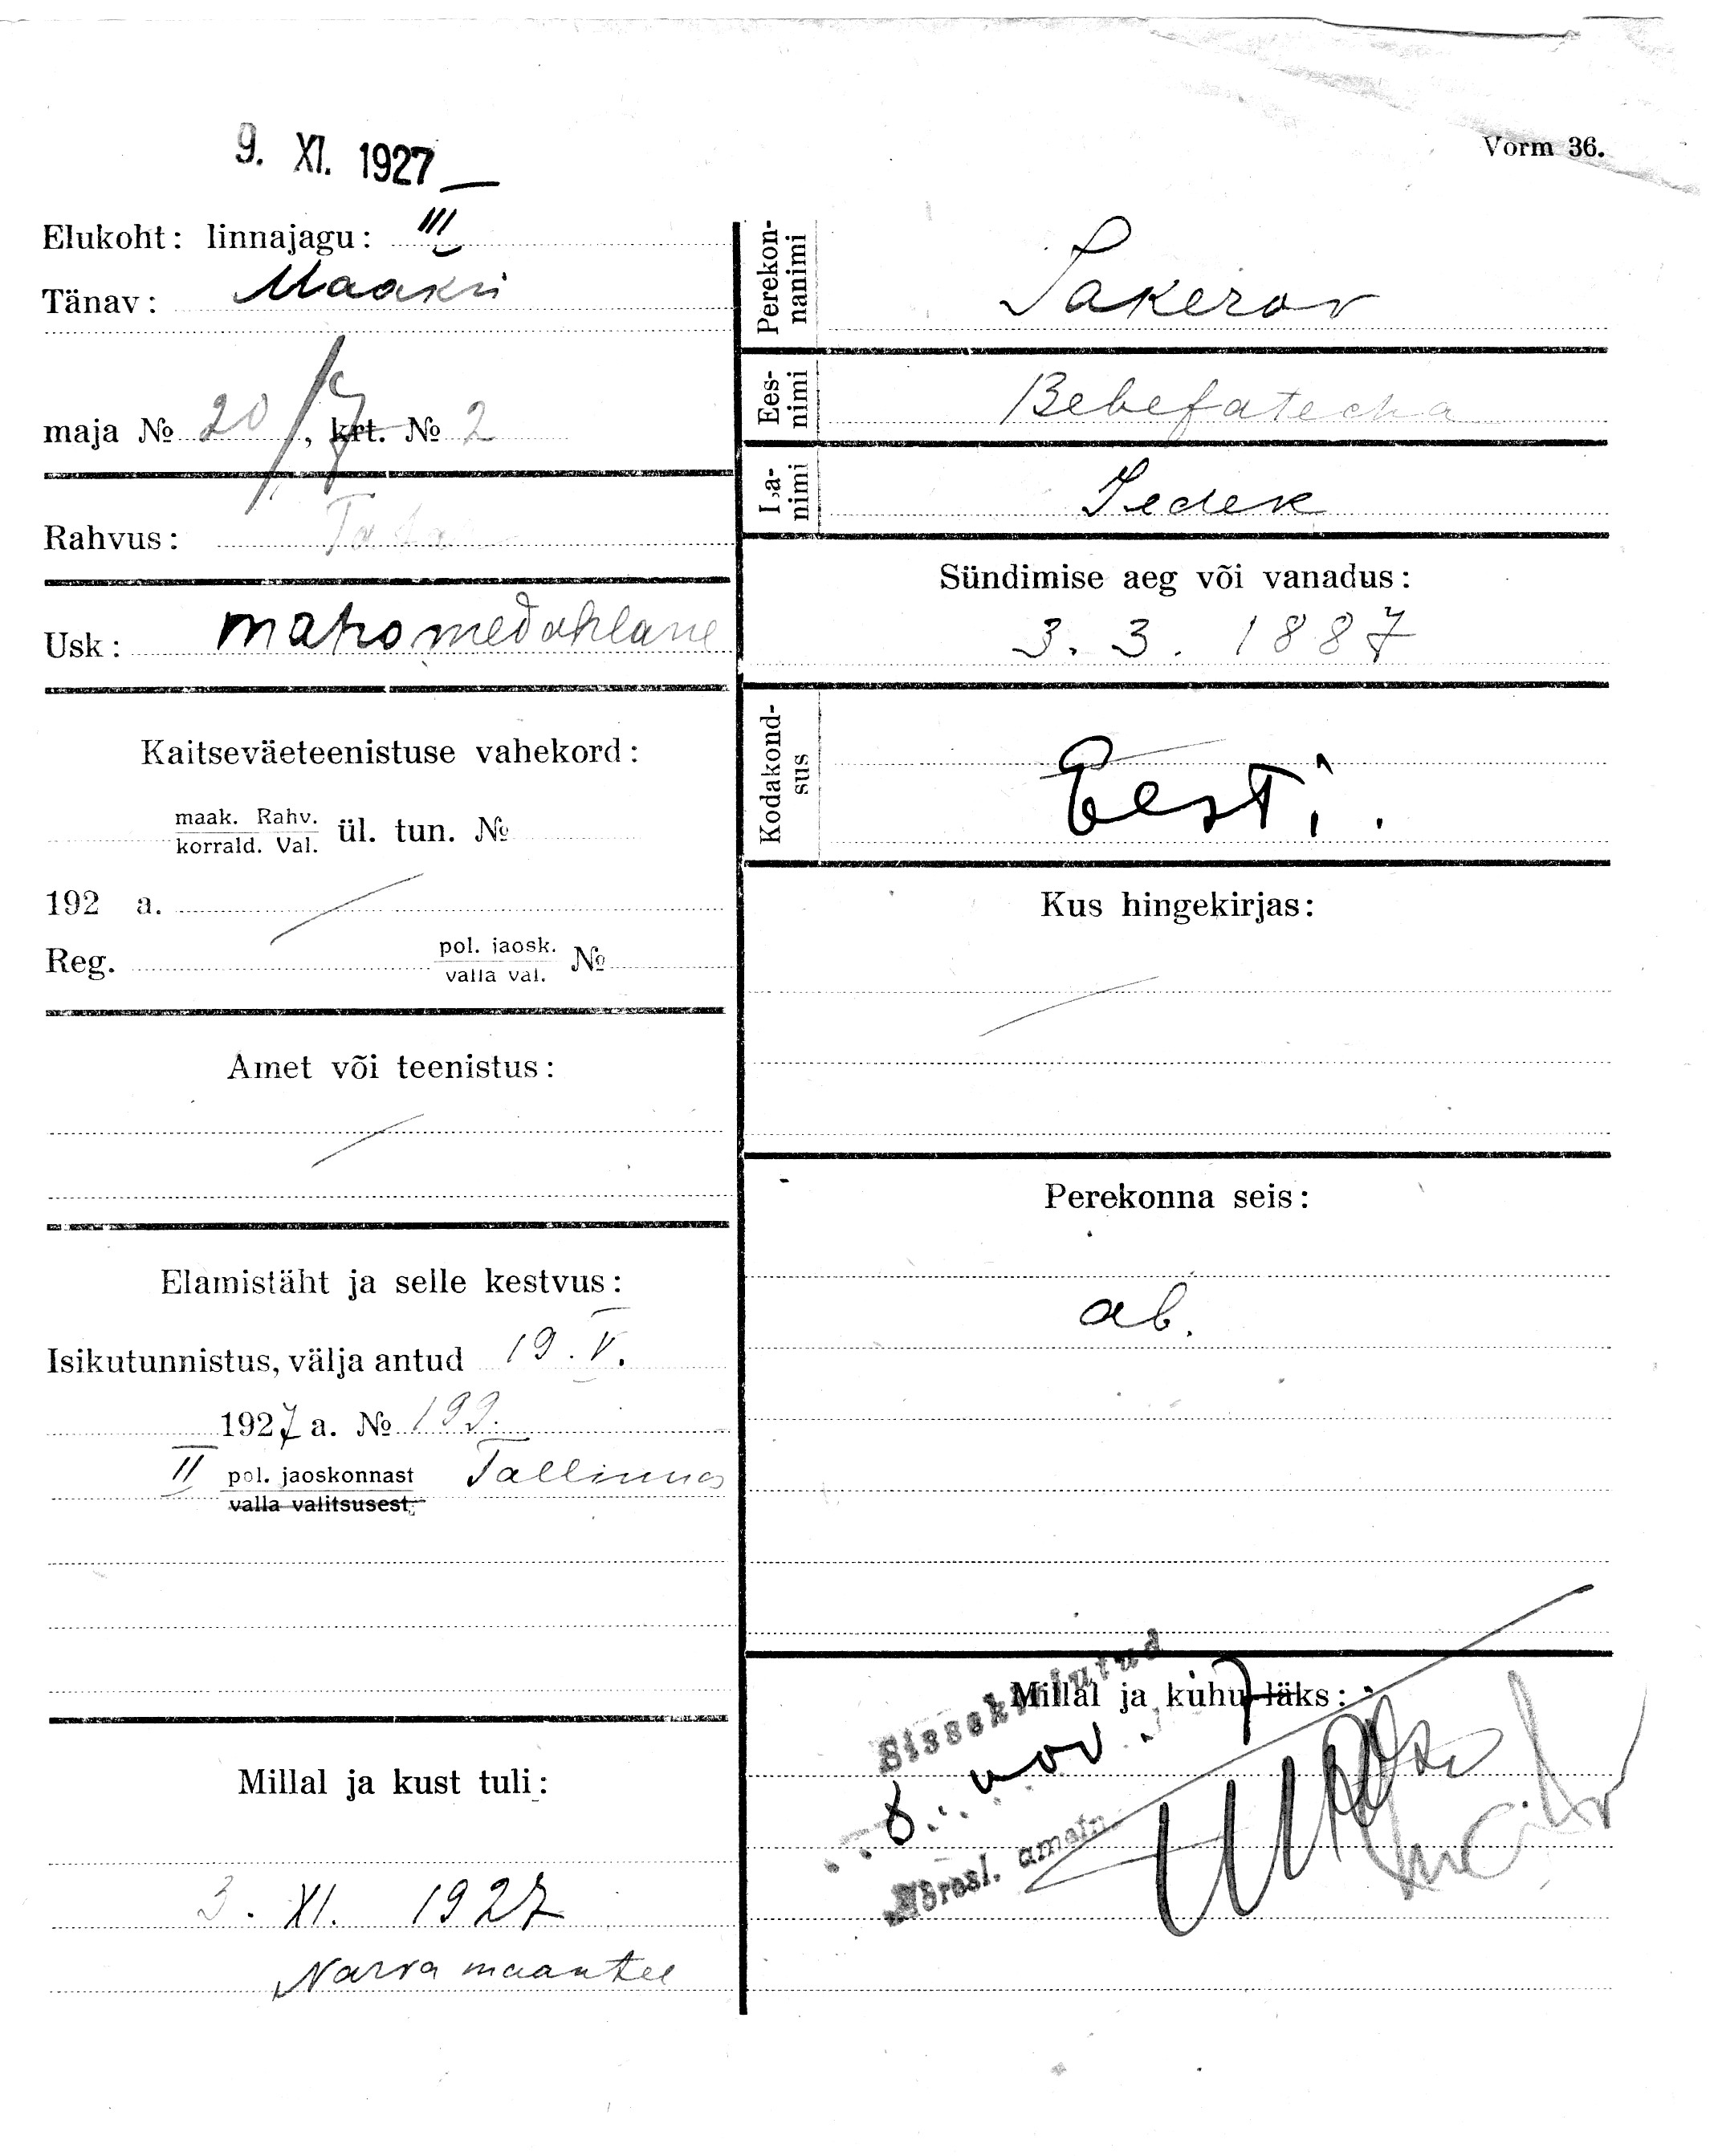 9. XI. 1927
Vorm 36.
Elukoht: linnajagu: III
Tänav: Maakri
maja № 20/7, krt. № 2
Rahvus: Tatar
Usk: mahomedahlane
Kaitseväeteenistuse vahekord:
maak. Rahv.
korrald. Val. ül. tun. №
192 a.
Reg. pol. jaosk.
valla val. №
Amet või teenistus:
Elamistäht ja selle kestvus:
Isikutunnistus, välja antud 19. V.
1927 a. № 199.
II pol. jaoskonnast Tallinnas
valla valitsusest,
Millal ja kust tuli:
3. XI. 1927
Narva maantee
Perekon-
nanimi
Sakerov
Ees-
nimi
Bebefatecha
Isa-
nimi
Sedek
Sündimise aeg või vanadus:
3. 3. 1887
Kodakond-
sus
Eesti.
Kus hingekirjas:
Perekonna seis:
ab.
Millal ja kuhu läks:
Sissekirjutud
8. nov. 7
Aadressl. ametn.